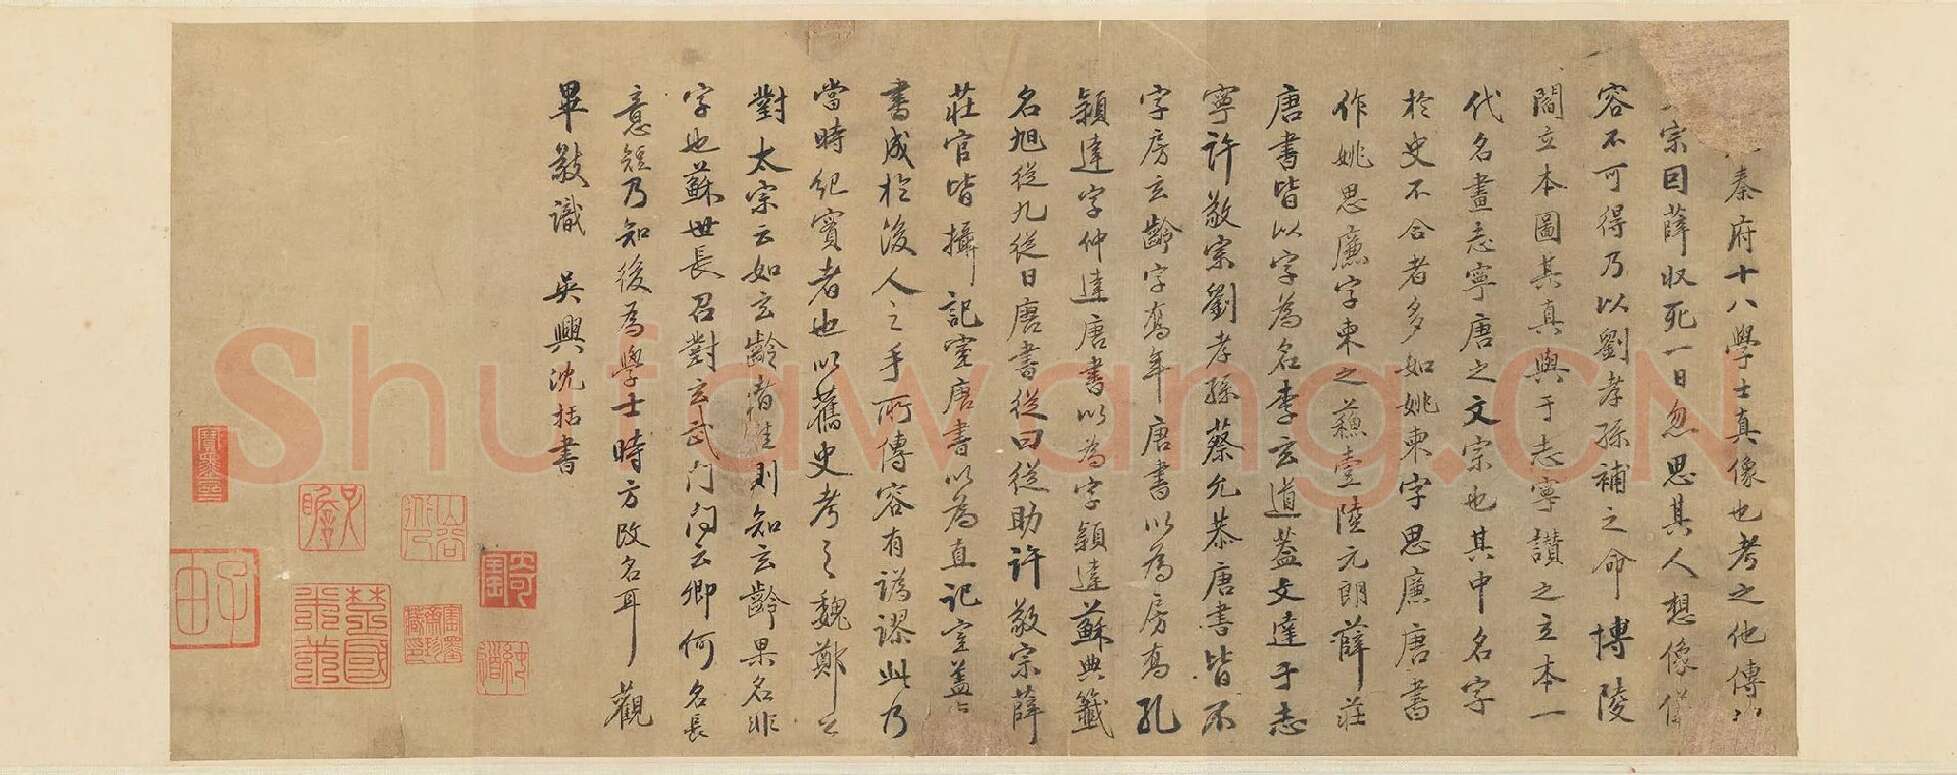 秦府十八學士真像也考之他傳
宗因薛収死一日忽思其人想像儀
容不可得乃以劉孝孫補之命博陵
閻立本圖其真與于志寧讃之立本一
代名畫志寧唐之文宗也其中名字
於史不合者多如姚柬字思廉唐書
作姚思廉字柬之蘓壹陸元朗薛莊
唐書皆以字為名李玄道蓋文達于志
寧許敬宗劉孝孫蔡允恭唐書皆不
字房玄齡字喬年唐書以為房喬孔
穎達字仲達唐書以為字穎達蘇典籖
名旭從九從日唐書從曰從助許敬宗薛
莊官皆攝記室唐書以為直記室盖
書成於後人之手所傳容有譌謬此乃
當時紀實者也以舊史考之魏鄭公
對太宗云如玄齡者儔則知玄齡果名非
字也蘇世長召對玄武門問云卿何名長
意短乃知後為學士時方改名耳觀
畢敬識 吳興沈括書
Shufawang.CN